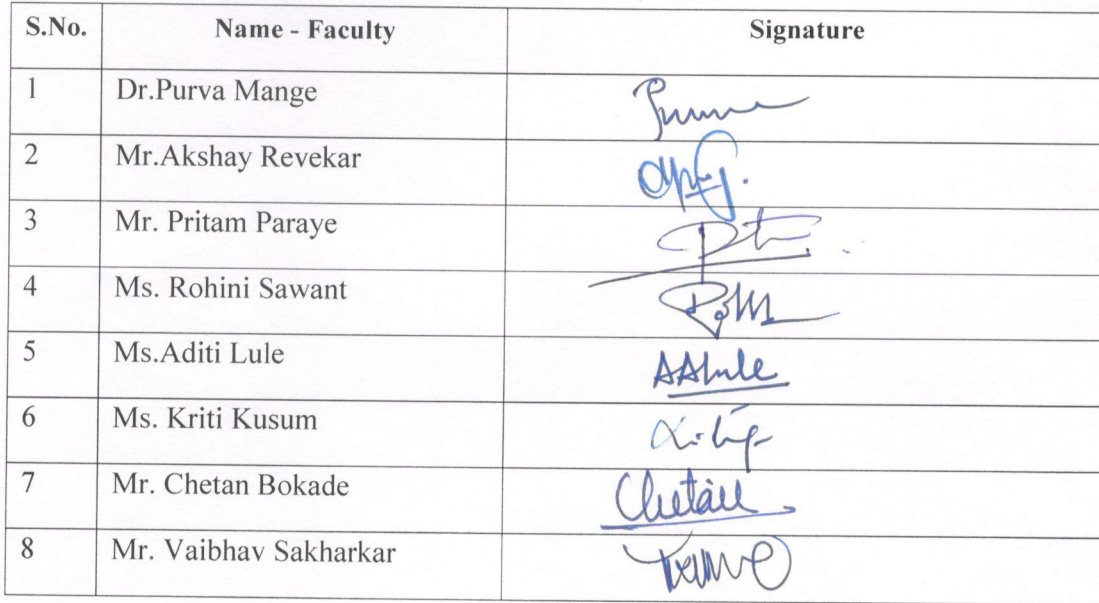 S.No. Name - Faculty Signature
1 Dr.Purva Mange
2 Mr.Akshay Revekar
3 Mr. Pritam Paraye
4 Ms. Rohini Sawant
5 Ms.Aditi Lule AALule
6 Ms. Kriti Kusum
7 Mr. Chetan Bokade Chetan
8 Mr. Vaibhav Sakharkar